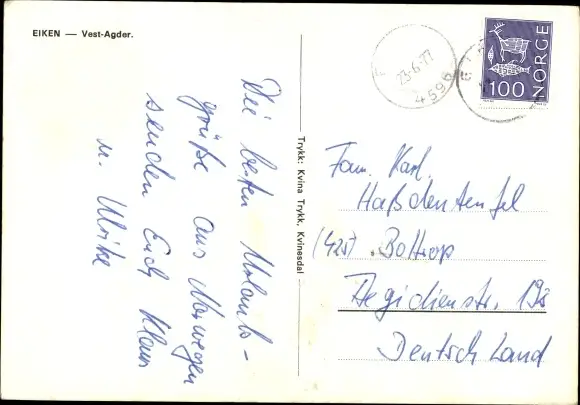 EIKEN — Vest-Agder.
Die besten Urlaubs-
grüße aus Norwegen
senden Euch Klaus
u. Ulrike
Trykk: Kvina Trykk, Kvinesdal
23-6-77
4596
100
NORGE
Fam. Karl
Haßdenteufel
(425) Bottrop
Aegidienstr.
Deutschland